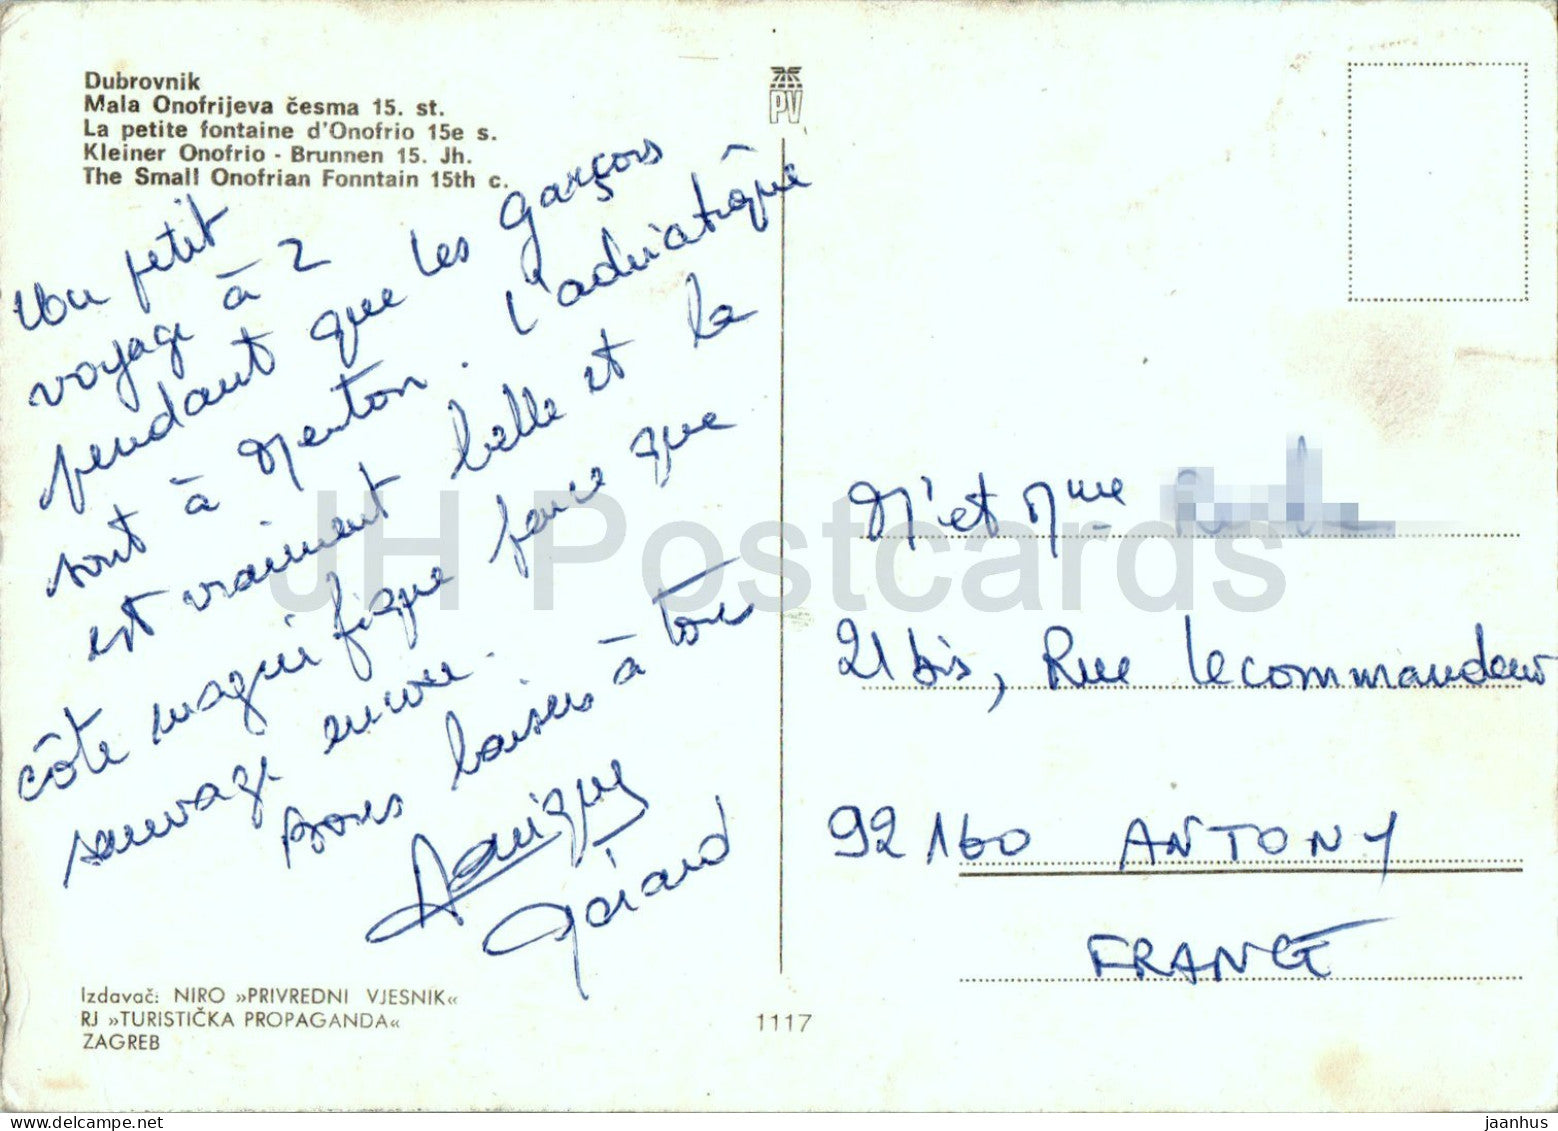 Dubrovnik
Mala Onofrijeva česma 15. st.
La petite fontaine d'Onofrio 15e s.
Kleiner Onofrio - Brunnen 15. Jh.
The Small Onofrian Fonntain 15th c.
PV
Un petit
voyage à 2
pendant que les garçons
sont à Menton. L'adriatique
est vraiment belle et la
côte magnifique parce que
sauvage encore.
Bons baisers à tous
Gérard
Mr et Mme
21 bis, Rue Lecommandeur
92160 ANTONY
FRANCE
Izdavač: NIRO »PRIVREDNI VJESNIK«
RJ »TURISTIČKA PROPAGANDA«
ZAGREB
1117
JH Postcards
www.delcampe.net
jaanhus